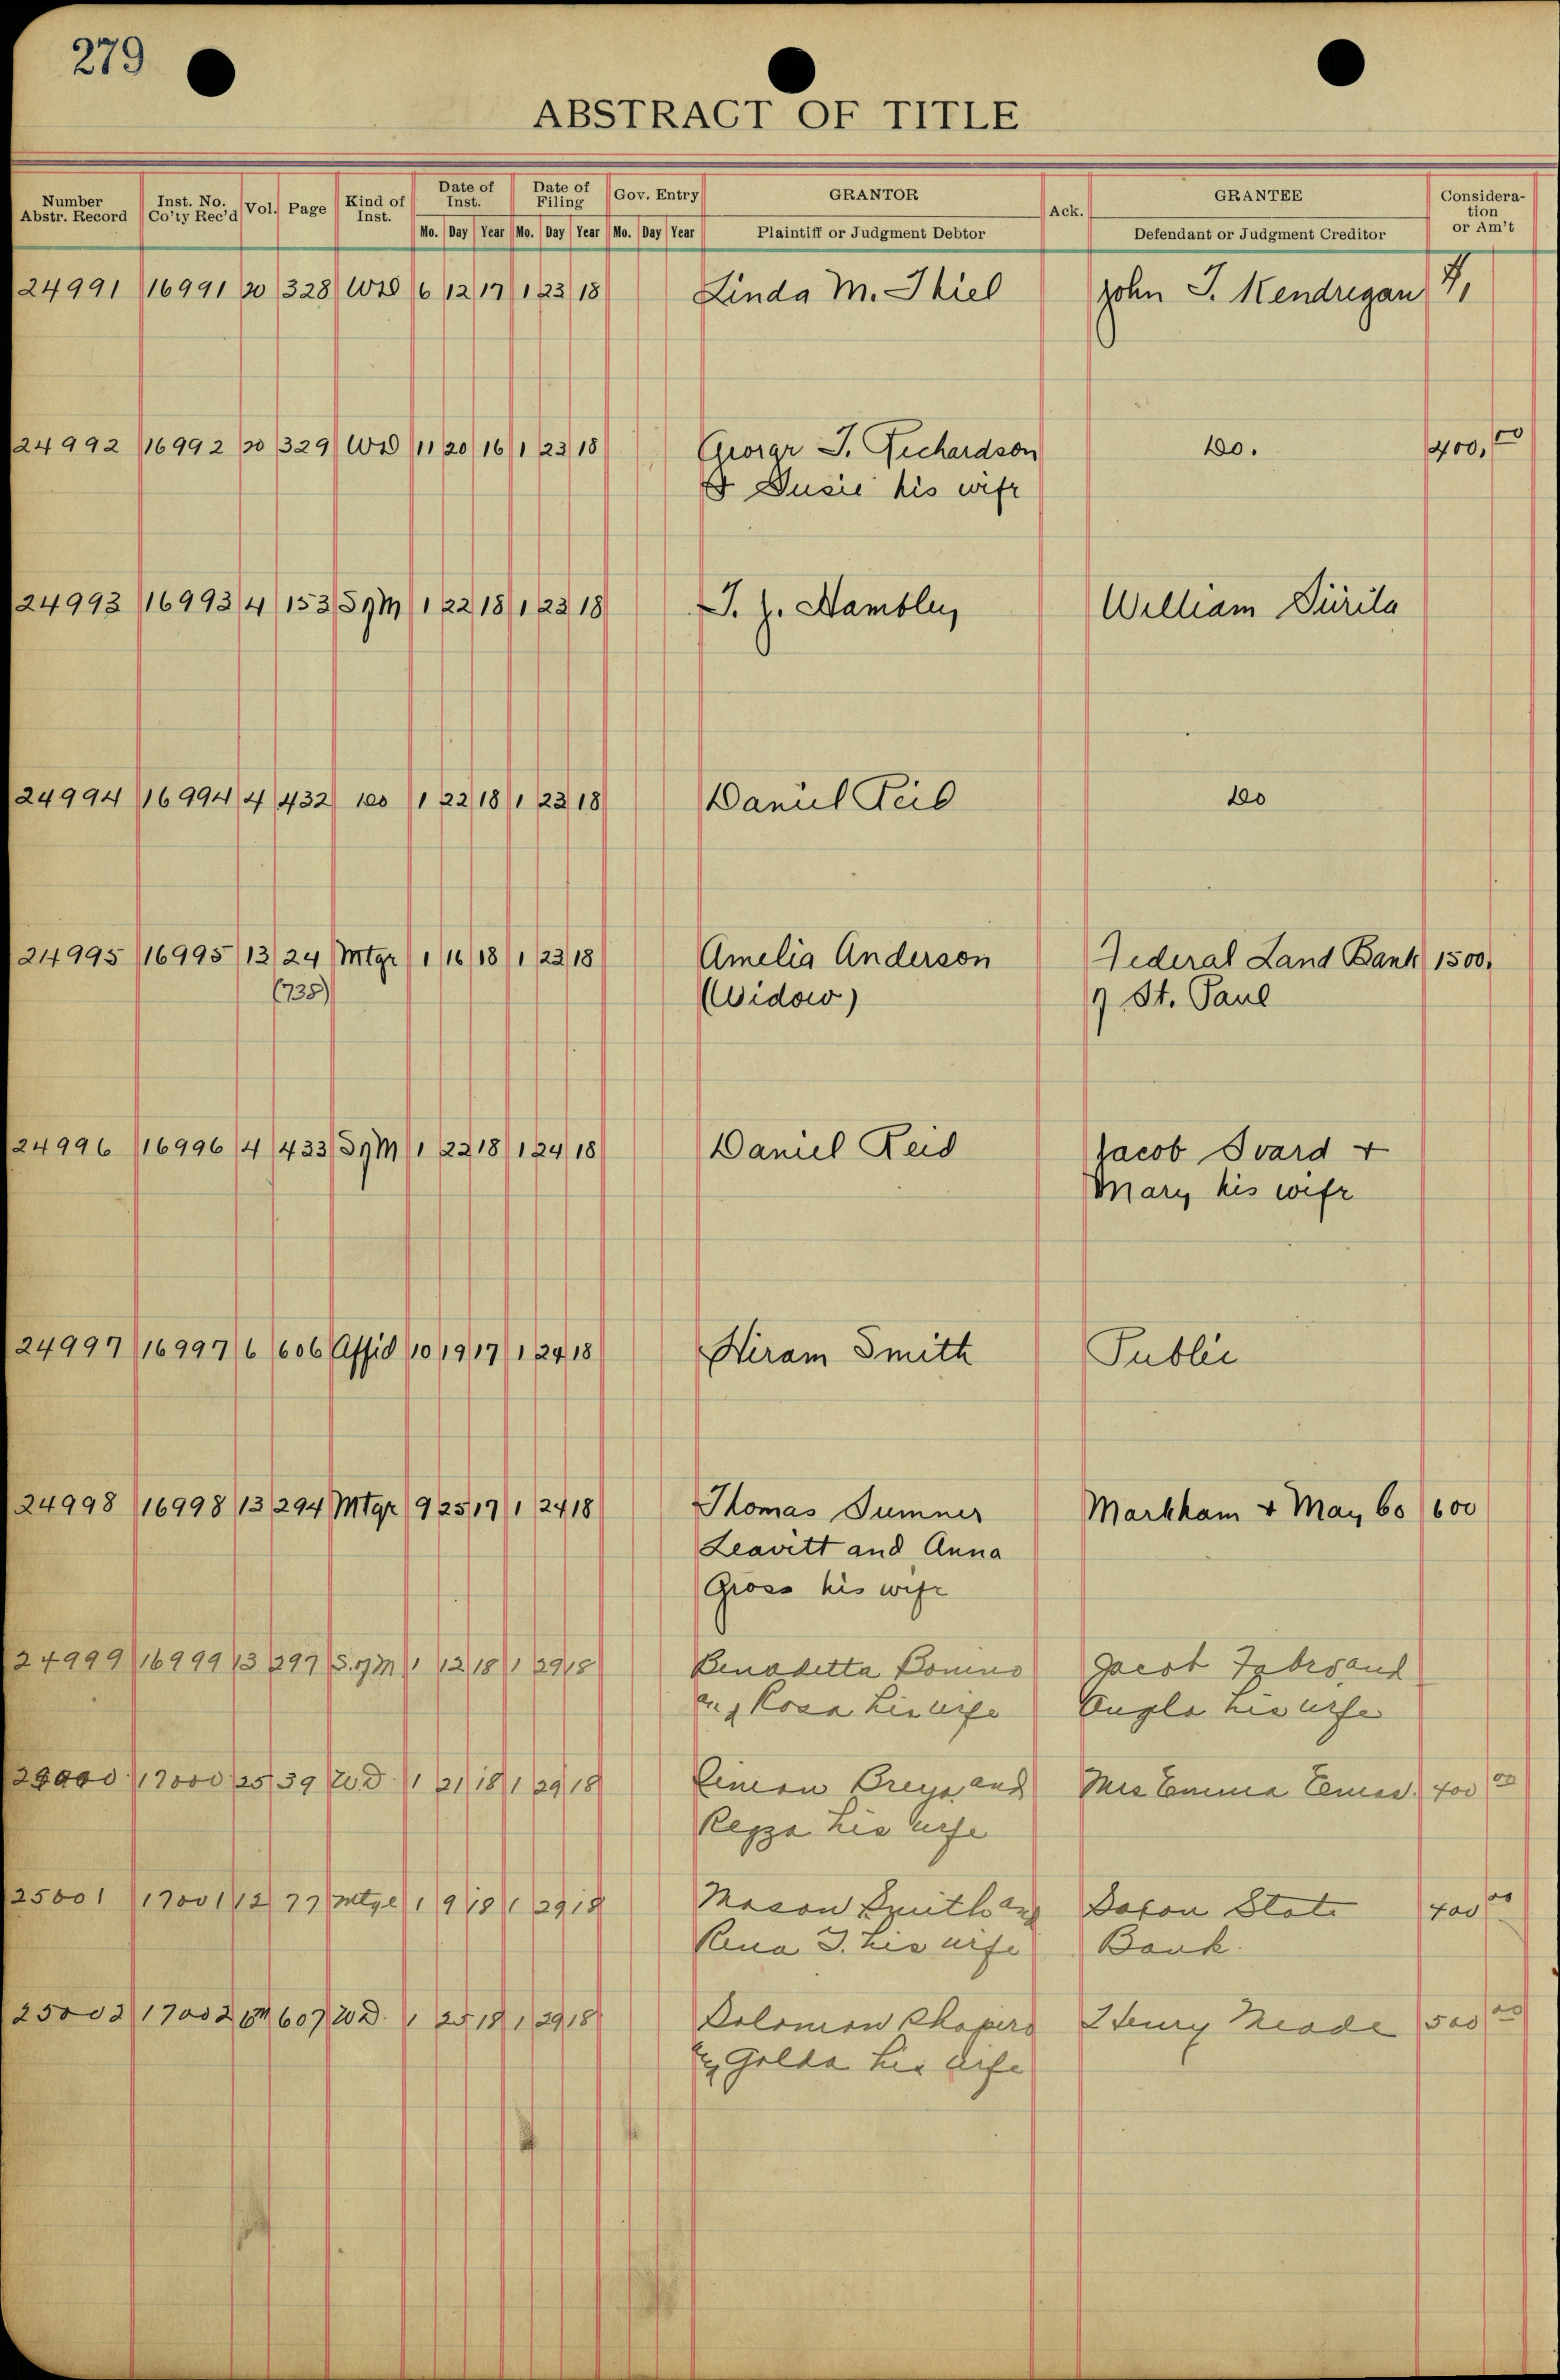 279
ABSTRACT OF TITLE
Number Abstr. Record Inst. No. Co'ty Rec'd Vol. Page Kind of Inst. Date of Inst. Date of Filing Gov. Entry GRANTOR Ack. GRANTEE Consideration or Am't
Mo. Day Year Mo. Day Year Mo. Day Year Plaintiff or Judgment Debtor Defendant or Judgment Creditor
24991 16991 20 328 WD 6 12 17 1 23 18 Linda M. Thiel John T. Kendregan 1,
24992 16992 20 329 WD 11 20 16 1 23 18 George T. Richardson Do. 400,00
& Susie his wife
24993 16993 4 153 S of M 1 22 18 1 23 18 T. J. Hambley William
24994 16994 4 432 Do 1 22 18 1 23 18 Daniel Reid Do
24995 16995 13 24 Mtge 1 16 18 1 23 18 Amelia Anderson Federal Land Bank 1500,
(735) (Widow) of St. Paul
24996 16996 4 433 S of M 1 22 18 1 24 18 Daniel Reid Jacob Svard +
Mary his wife
24997 16997 6 606 Affid 10 19 17 1 24 18 Hiram Smith Public
24998 16998 13 294 Mtge 9 25 17 1 24 18 Thomas Sumner Markham & May Co 600
Leavitt and Anna
Gross his wife
24999 16999 13 297 S. of M 1 12 18 1 29 18 Benadetta Bonino Jacob
and Rosa his wife his wife
25000 17000 25 39 W.D. 1 21 18 1 29 18 Simon and Mrs Emma 400 00
his wife
25001 17001 12 77 Mtge 1 9 18 1 29 18 Mason Smith and Saxon State 400 00
Rena T. his wife Bank.
25002 17002 607 W.D. 1 25 18 1 29 18 Solomon Shapero Henry Meade 500 00
& Golda his wife